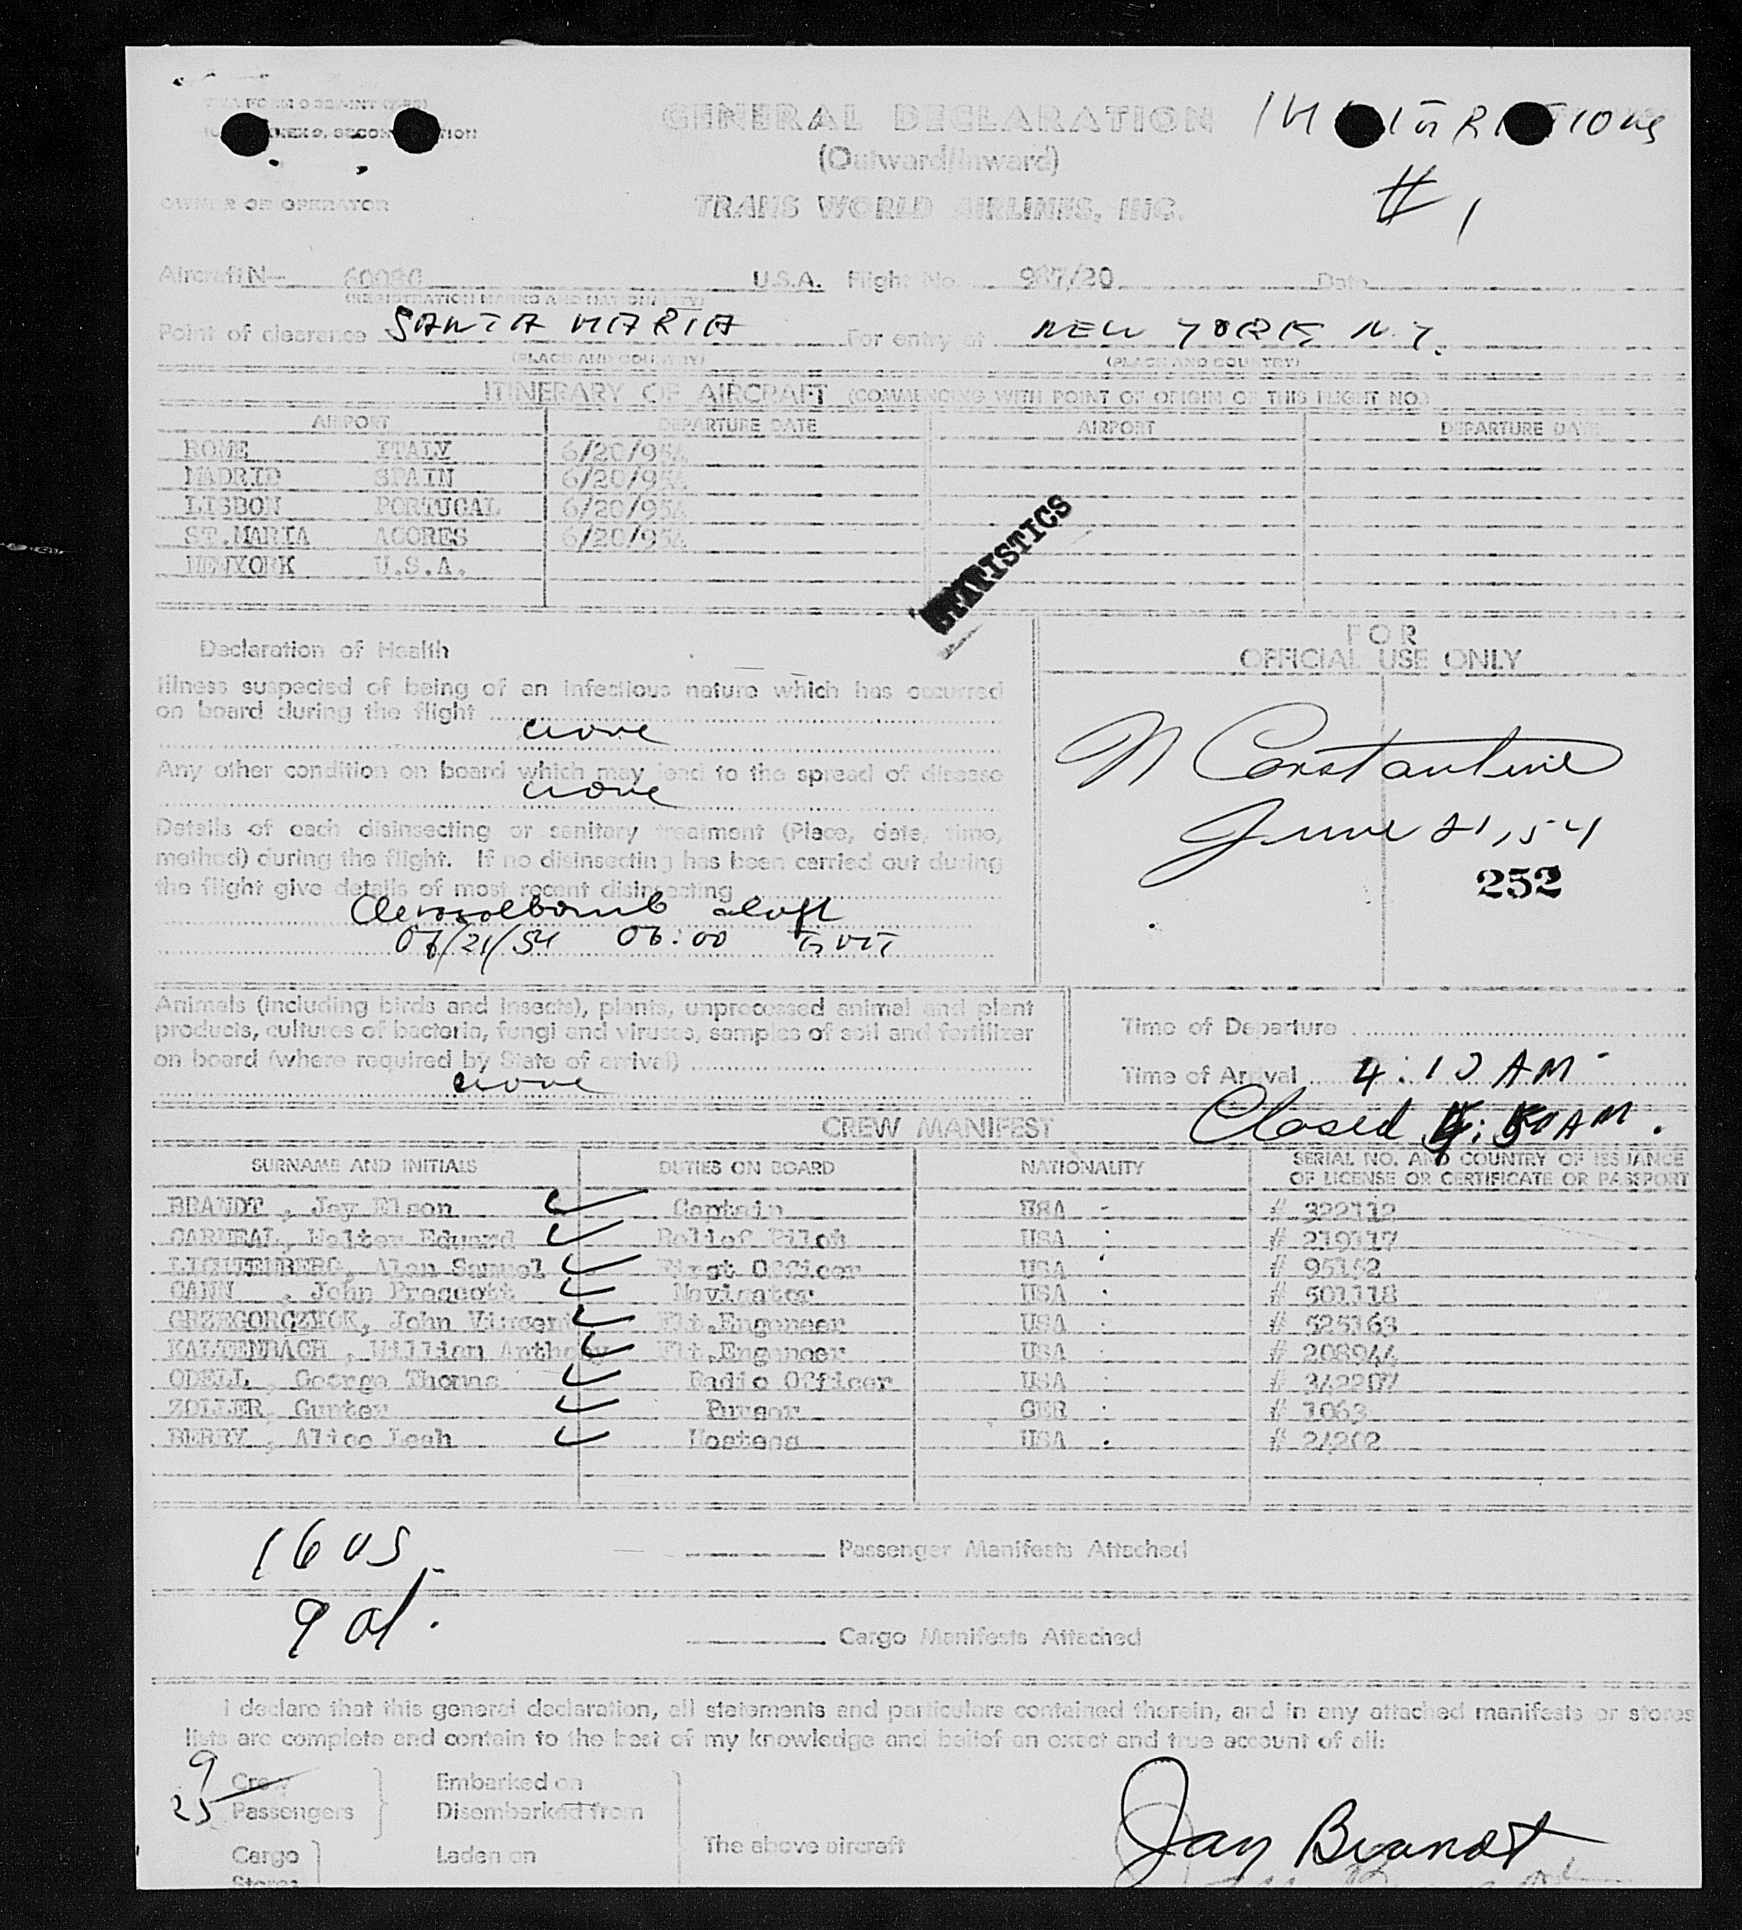 GENERAL DECLARATION
(Outward/Inward)
# 1
OWNER OR OPERATOR TRANS WORLD AIRLINES, INC.
Aircraft N- U.S.A. Flight No. 967/20 Date
(REGISTRATION MARKS AND NATIONALITY)
Point of clearance SANTA MARIA For entry at NEW YORK, N.Y.
(PLACE AND COUNTRY) (PLACE AND COUNTRY)
ITINERARY OF AIRCRAFT (COMMENCING WITH POINT OF ORIGIN OF THIS FLIGHT NO.)
AIRPORT DEPARTURE DATE AIRPORT DEPARTURE DATE
ROME ITALY 6/20/954
MADRID SPAIN 6/20/954
LISBON PORTUGAL 6/20/954
ST.MARIA ACORES 6/20/954
NEWYORK U.S.A.
STATISTICS
Declaration of Health
Illness suspected of being of an infectious nature which has occurred
on board during the flight
none
Any other condition on board which may lead to the spread of disease
none
Details of each disinsecting or sanitary treatment (Place, date, time,
method) during the flight. If no disinsecting has been carried out during
the flight give details of most recent disinsecting
Aerosolbomb aloft
06/21/54 06:00 GMT
FOR
OFFICIAL USE ONLY
N Constantine
June 21, 54
252
Animals (including birds and insects), plants, unprocessed animal and plant
products, cultures of bacteria, fungi and viruses, samples of soil and fertilizer
on board (where required by State of arrival)
none
Time of Departure
Time of Arrival 4:10 AM
Closed AM.
CREW MANIFEST
SURNAME AND INITIALS DUTIES ON BOARD NATIONALITY SERIAL NO. AND COUNTRY OF ISSUANCE
OF LICENSE OR CERTIFICATE OR PASSPORT
BRANDT , Jay Elson Captain USA # 322112
CARNEAL, Walter Edward Relief Pilot USA # 219117
LICHTENBERG, Alan Samuel First Officer USA # 95152
CANN , John Prescott Navigator USA # 501118
GRZEGORCZECK, John Vincent Flt.Engeneer USA # 525163
KALTENBACH , William Anthony Flt.Engeneer USA # 208944
ODELL , George Thomas Radio Officer USA # 342207
ZOLLER, Gunter Purser GER # 1063
BERRY , Alice Leah Hostess USA # 24202
16 US
Passenger Manifests Attached
9 al.
Cargo Manifests Attached
I declare that this general declaration, all statements and particulars contained therein, and in any attached manifests or stores
lists are complete and contain to the best of my knowledge and belief an exact and true account of all:
9 Crew Embarked on
25 Passengers Disembarked from
The above aircraft
Cargo Laden on
Stores
Jay Brandt